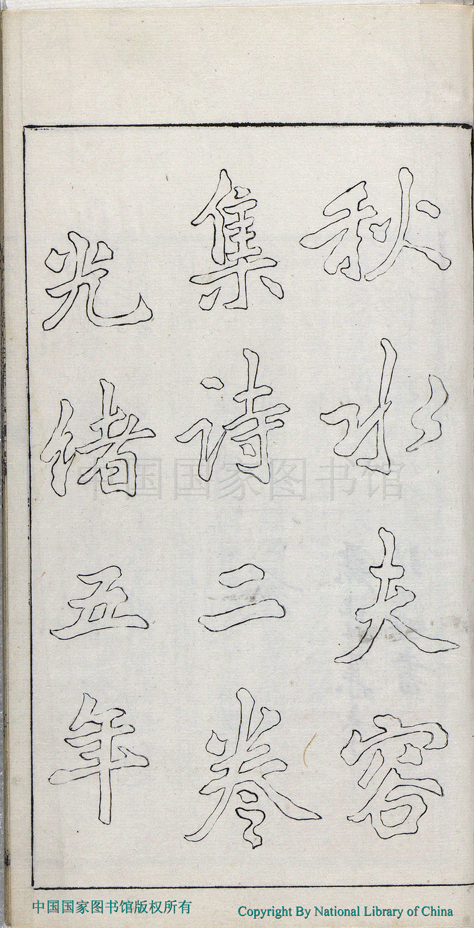 秋水夫容
集詩二卷
光緒五年
中国国家图书馆
中国国家图书馆版权所有
Copyright By National Library of China